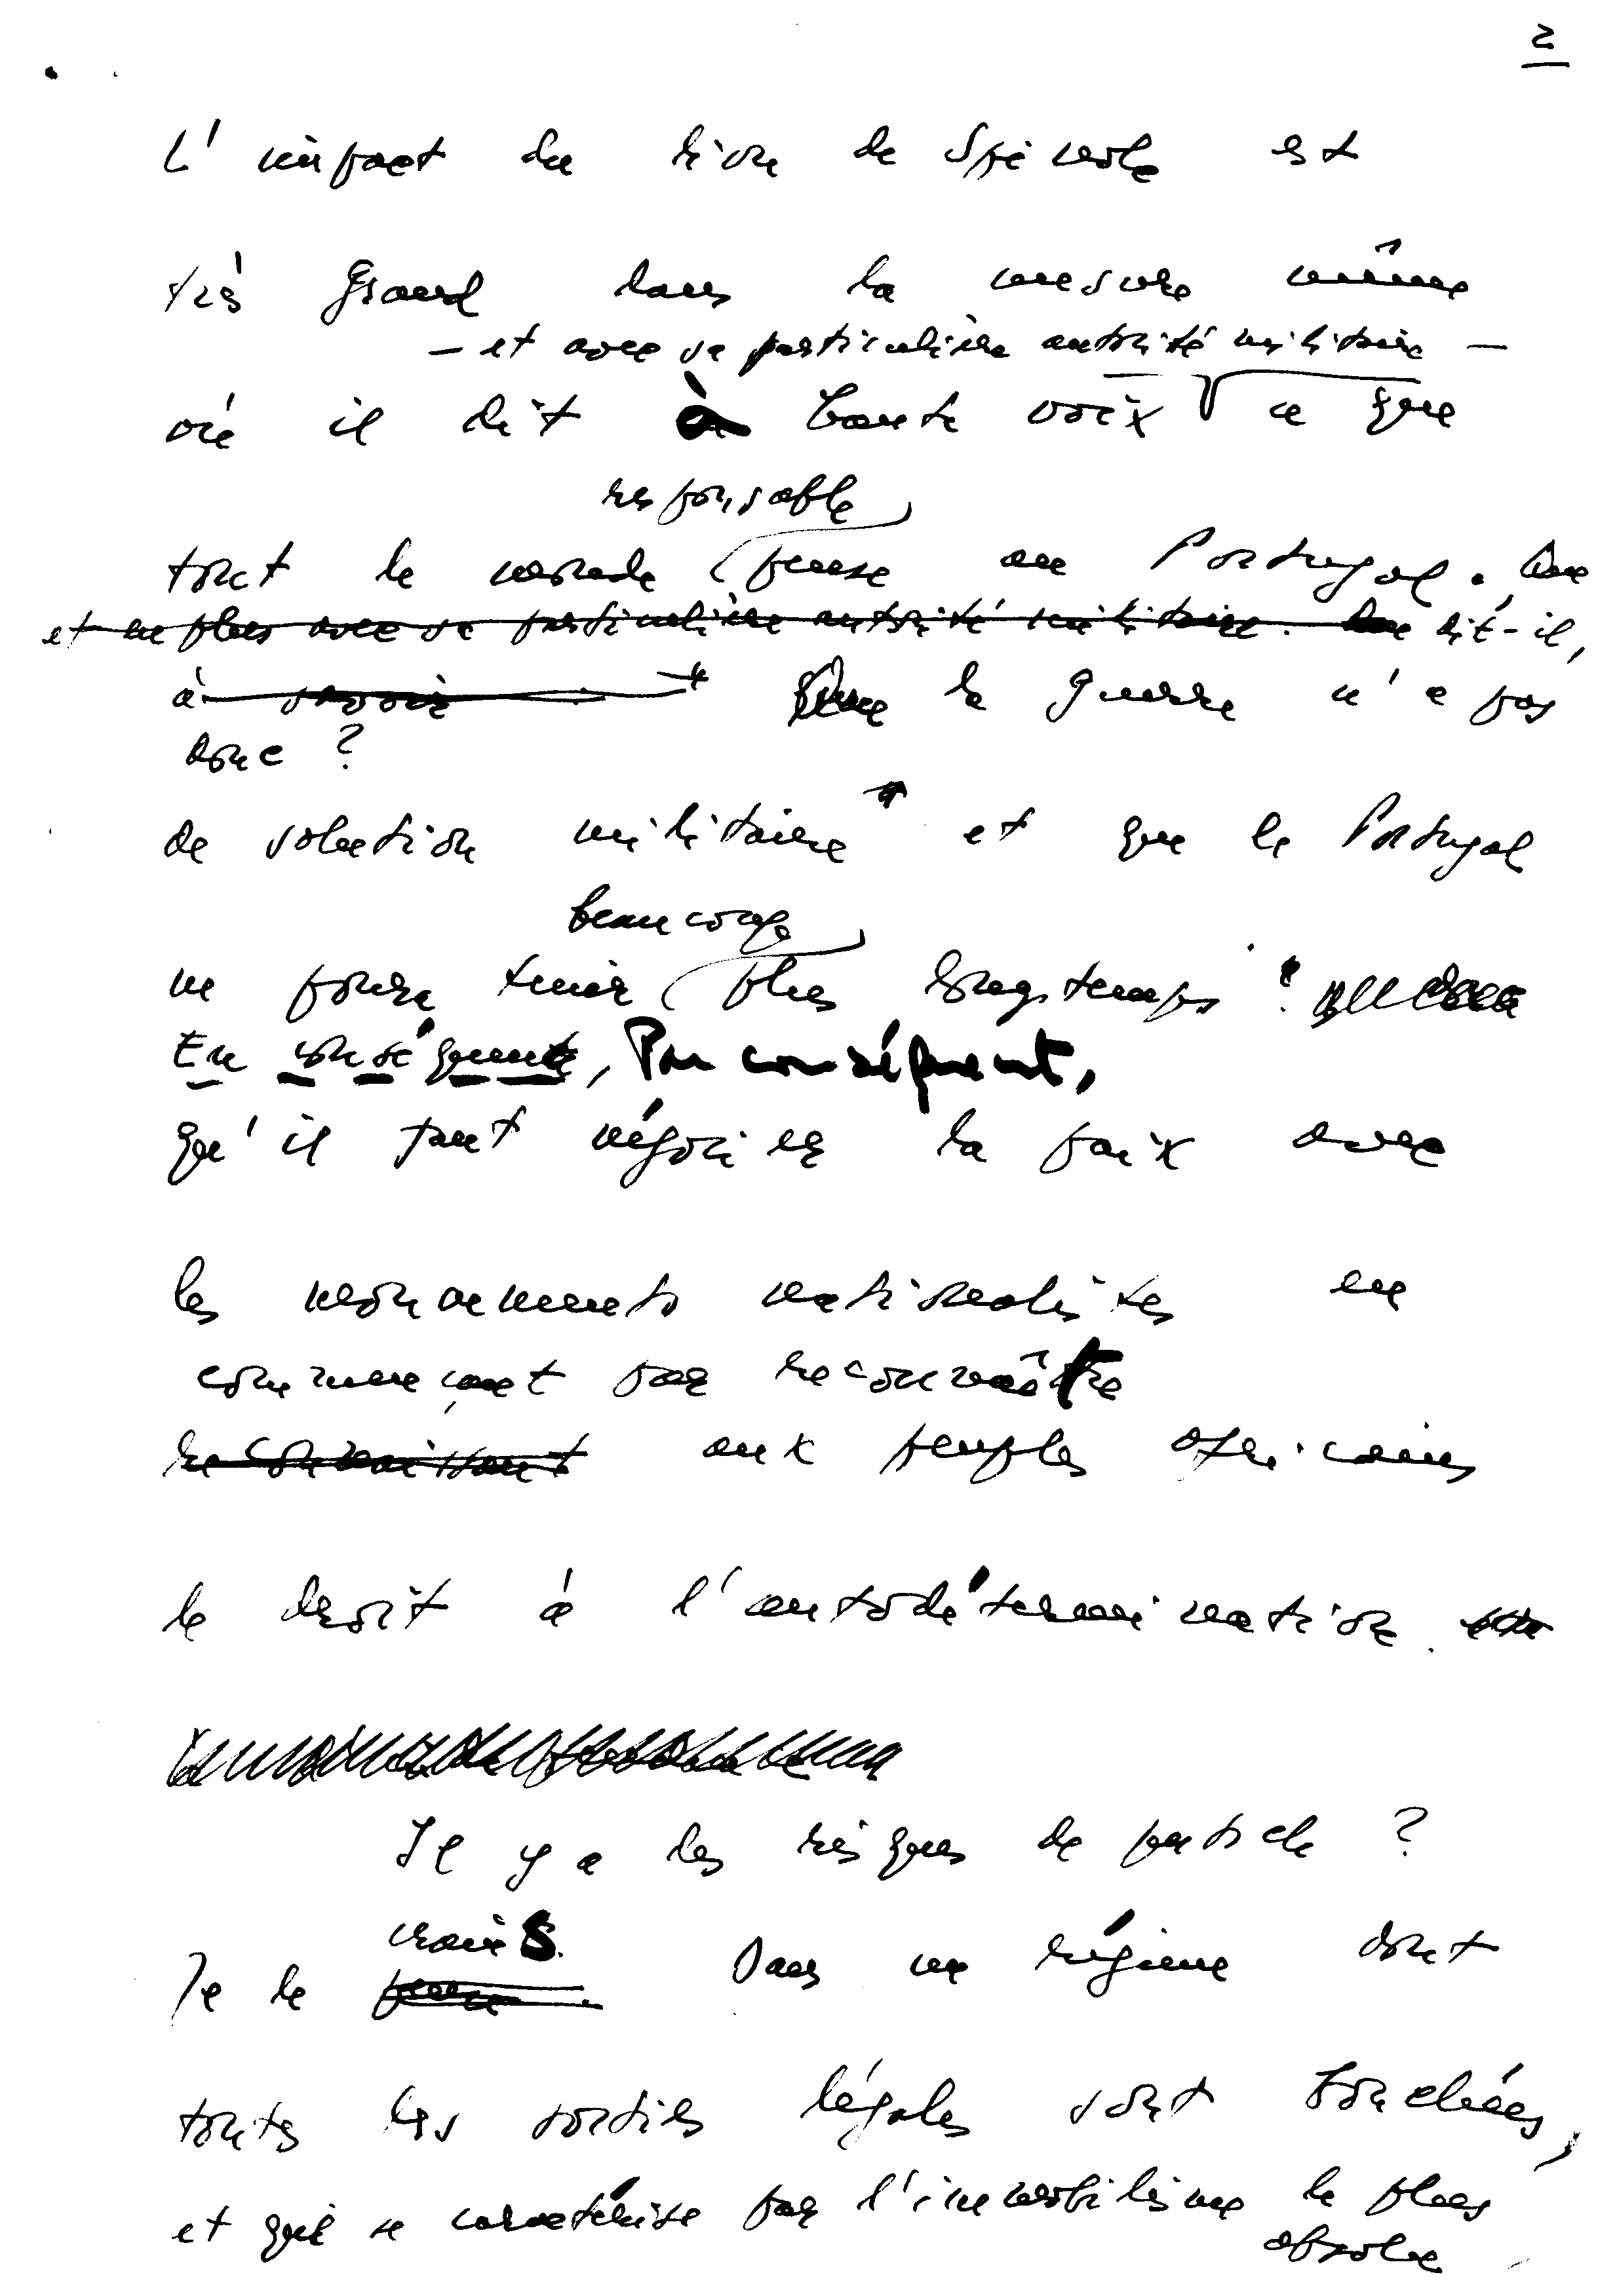 2
L'impact du livre de Spinola est
très grand dans la mesure même
— et avec sa particulière autorité militaire —
où il dit à haute voix ce que
responsable
tout le monde pense au Portugal. Que
et en plus avec sa particulière autorité militaire. Que dit-il,
à savoir Que la guerre n'a pas
donc ?
de solution militaire et que le Portugal
beaucoup
ne pourra tenir plus longtemps
En conséquence, Par conséquent,
qu'il faut négocier la paix avec
les mouvements nationalistes en
commençant par reconnaître
reconnaissant aux peuples africains
le droit à l'autodétermination.
Il y a des risques de putsch ?
crois.
Je le pense. Dans un régime dont
toutes les sorties légales sont bouchées,
et qui se caractérise par l'immobilisme le plus
absolu